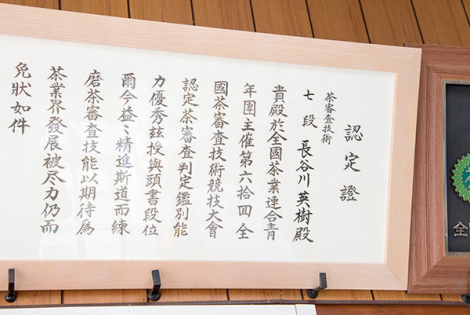 認定證
茶審査技術
七段 長谷川英樹殿
貴殿於全國茶業連合青
年團主催第六拾回全
國茶審査技術競技大會
認定茶審査判定鑑別能
力優秀玆授與頭書段位
爾今益〻精進斯道而練
磨茶審査技能以期待為
茶業界發展被尽力仍而
免狀如件
全